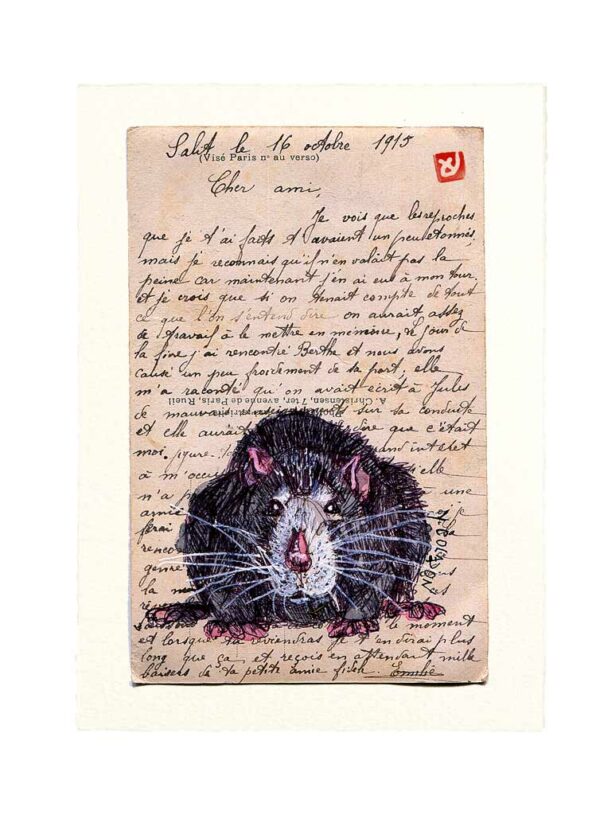 Salit le 16 octobre 1915
(Visé Paris nº au verso)
Cher ami,
Je vois que les reproches
que je t'ai faits t'avaient un peu étonnés,
mais je reconnais qu'il n'en valait pas la
peine car maintenant j'en ai eu à mon tour
et je crois que si on tenait compte de tout
ce que l'on s'entend dire on aurait assez
de travail à le mettre en mémoire, le jour de
la foire j'ai rencontré Berthe et nous avons
causé un peu froidement de sa part, elle
m'a raconté qu'on avait écrit à Jules
A. Christensen, 7 ter, avenue de Paris, Rueil
de mauvais sur la conduite
et elle aurait dire que c'était
moi. intérêt
à m'occu s'elle
n'a p une
amie je
ferai la
renco
genre
la m
le moment
et lorsque tu reviendras je t'en dirai plus
long que ça et reçois en attendant mille
baisers de ta petite amie Emilie